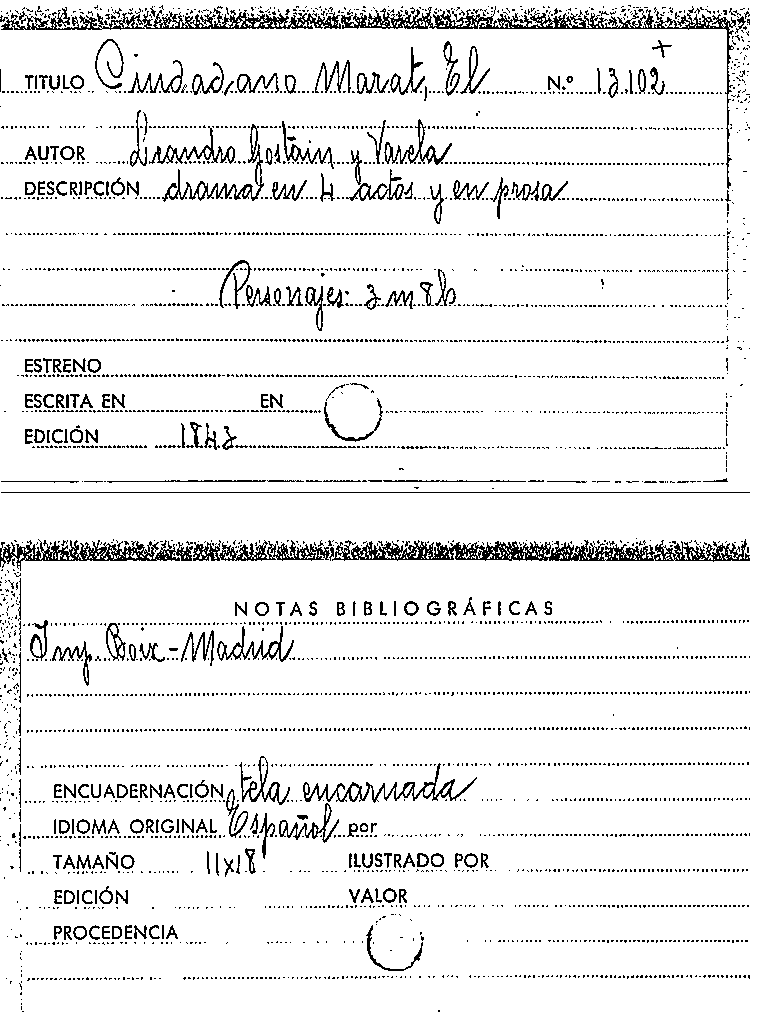 TITULO Ciudadano Marat, El N.º 13.102 +
AUTOR Leandro Gostain y Varela
DESCRIPCIÓN drama en 4 actos y en prosa
Personajes: 3 m 8 h
ESTRENO
ESCRITA EN EN
EDICIÓN 1843
NOTAS BIBLIOGRÁFICAS
Imp. Boix - Madrid
ENCUADERNACIÓN tela encarnada
IDIOMA ORIGINAL Español por
TAMAÑO 11x18 ILUSTRADO POR
EDICIÓN VALOR
PROCEDENCIA